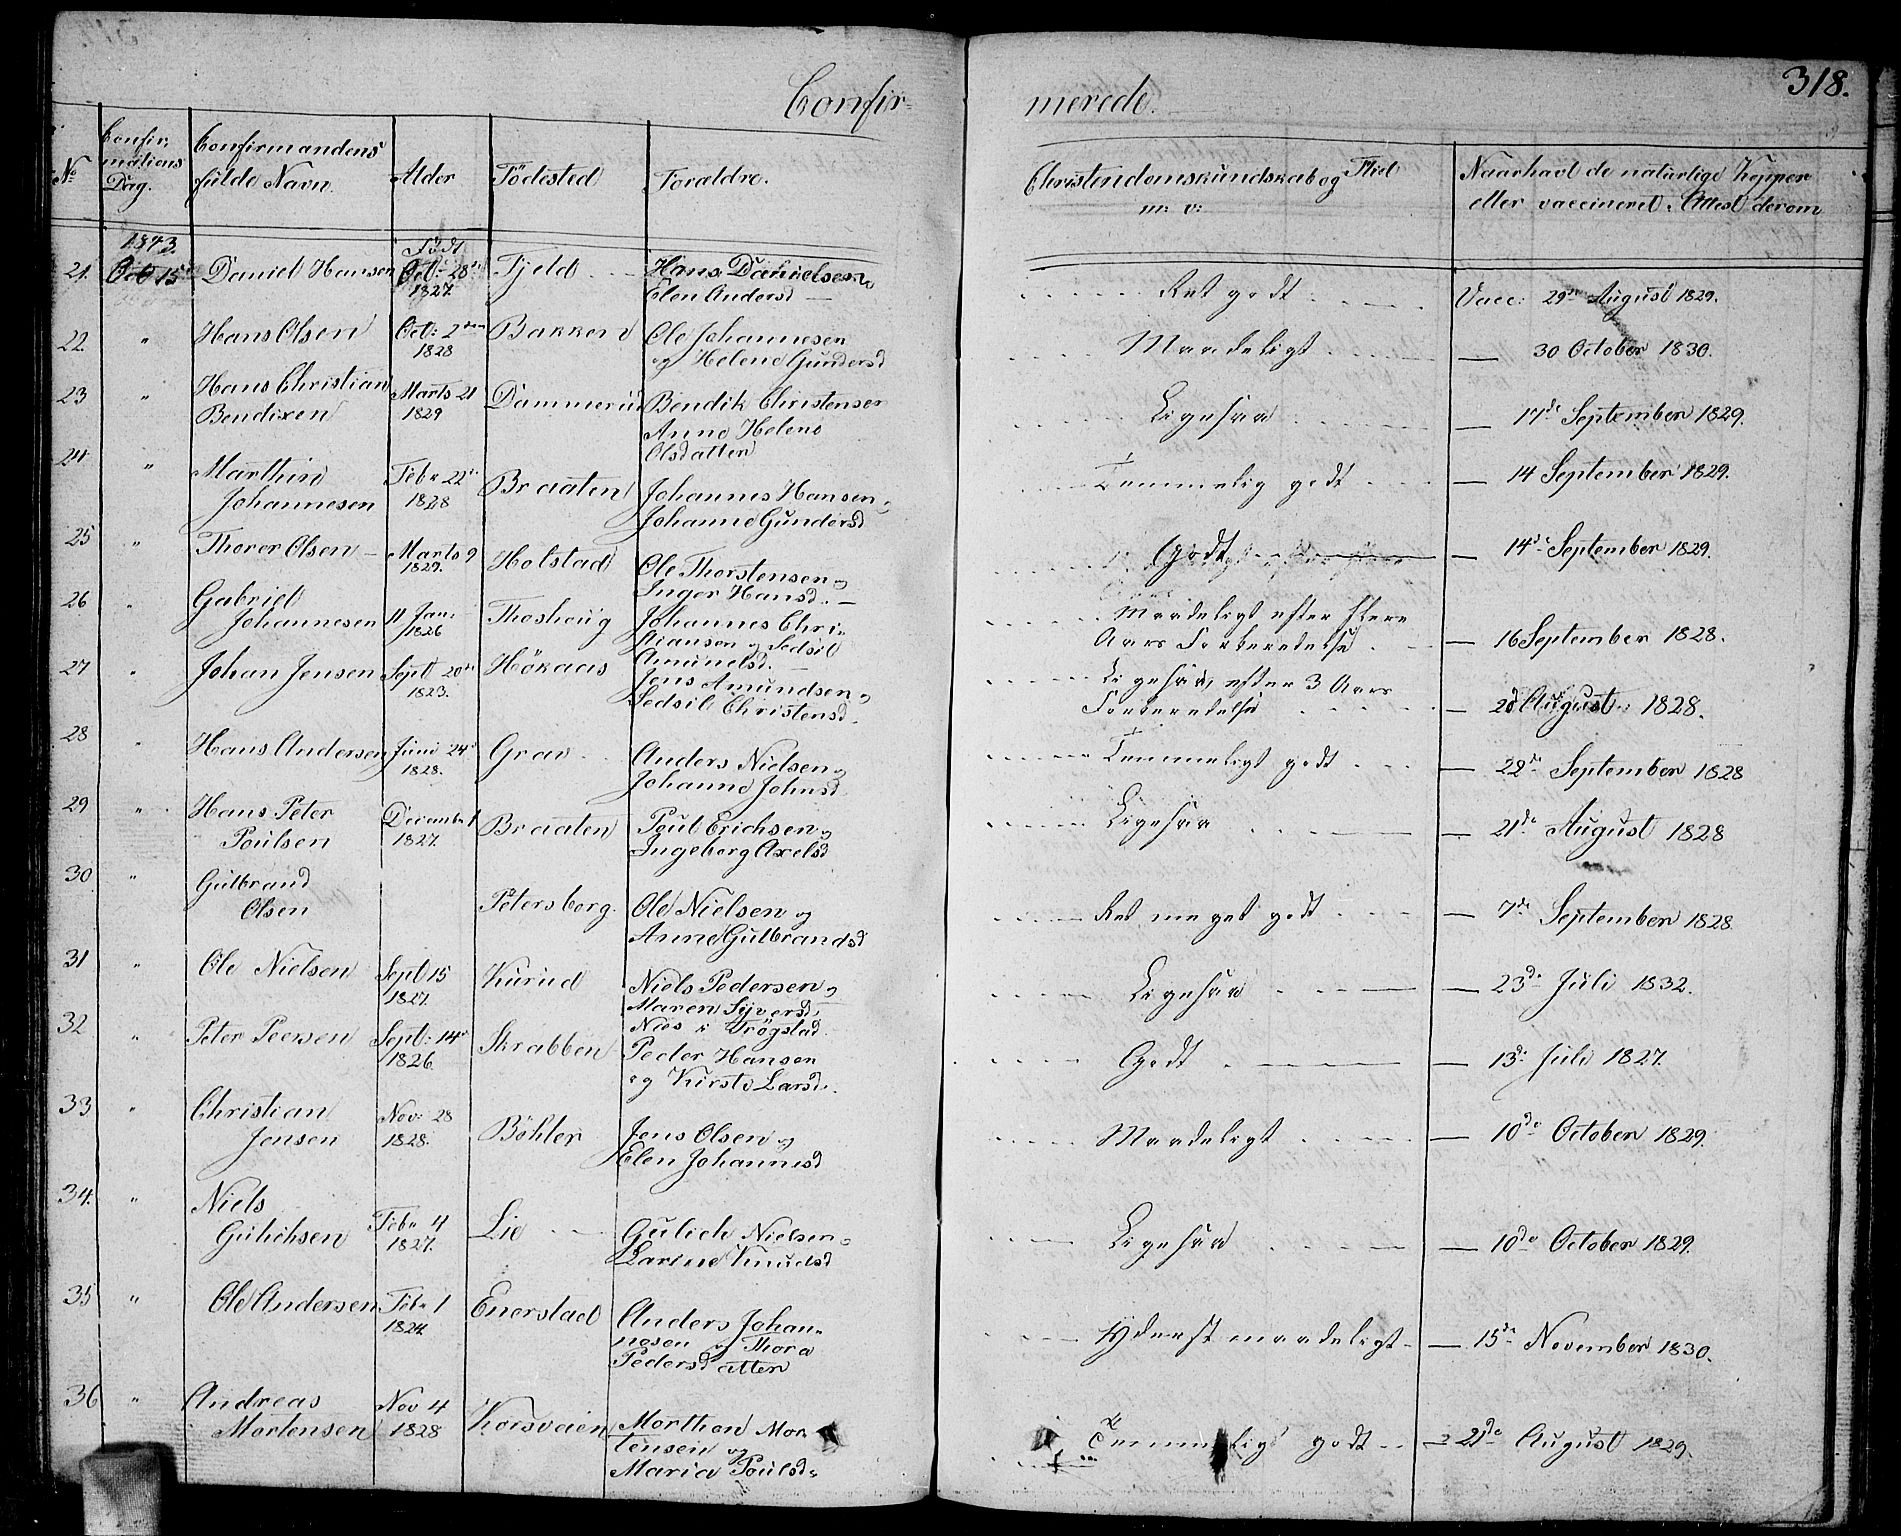 318.
Confir= merede.
No
Confir:
mations
Dag.
Confirmandens
fulde Navn.
Alder
Födested
Forældre.
Christendomskundskab og Flid
m: v:
Naar havt de naturlige Kopper
eller vaccineret. Attest derom
1843. Födt
21. Oct 15 Daniel Hansen Oct: 28 1827. Fjeld Hans Danielsen
Elen Andersd —
Ret godt Vacc: 29de August 1829.
22. " Hans Olsen Oct: 2den 1828 Bakken Ole Johannesen
og Helene Gundersd
Maadeligt — 30 October 1830.
23 " Hans Christian
Bendixen Marts 21 1829 Dammerud Bendik Christensen
Anne Helene
Olsdatter
Ligesaa — 17de September 1829.
24 " Marthin
Johannesen Febr 22 1828 Braaten Johannes Hansen
Johanne Gundersd
Temmelig godt — 14 September 1829.
25 " Thorer Olsen Marts 9 1829. Holstad Ole Thorstensen og
Inger Hansd. —
Godt — 14de September 1829.
26 " Gabriel
Johannesen 11 Jan: 1826 Thoshoug Johannes Chri-
stiansen og Sedsil
Amundsd. —
Maadeligt efter flere
Aars Forberedelse — 16 September 1828.
27 " Johan Jensen Sept 20 1823. Hökaas Jens Amundsen og
Sedsil Christensd.
Ligesaa, efter 3 Aars
Forberedelse — August 1828.
28 " Hans Andersen Juni 24 1828. Grav Anders Nielsen og
Johanne Johnsd
Temmeligt godt — 22de September 1828
29 " Hans Peter
Poulsen Decembr 1 1827. Braaten Poul Erichsen og
Ingeborg Axelsd
Ligesaa — 21de August 1828
30 " Gulbrand
Olsen Petersborg. Ole Nielsen og
Anne Gulbrandsd
Ret meget godt — 7de September 1828.
31 " Ole Nielsen Sept 15 1827. Kurud Niels Pedersen og
Maren Syversd.
Ligesaa — 23de Juli 1832.
32 " Peter Peersen Sept: 14 1826. Skrabben Nies i Trögstad.
Peder Hansen
og Kirste Larsd.
Godt — 13de Juli 1827.
33 " Christian
Jensen Nov: 28 1828. Böhler Jens Olsen og
Elen Johannesd
Maadeligt — 10de October 1829.
34. " Niels
Gulichsen Febr 4 1827. Lie Gulich Nielsen
Karine Knudsd
Ligesaa — 10de October 1829.
35 " Ole Andersen Febr 1 1824. Enerstad Anders Johan-
nesen og Thora
Pedersdatter
Yderst maadeligt — 15de November 1830.
36 " Andreas
Mortensen Nov 4 1828 Korsveien Morthen Mor
tensen og
Maria Poulsd
Temmelig godt — 21de August 1829.